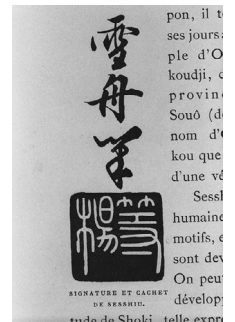 雪舟筆
等楊
SIGNATURE ET CACHET
DE SESSHIU.
pon, il t
ses jours
ple d'O
koudji, c
provin
Souô (d
nom d'
kou que
d'une vé
Sessh
humaine
motifs, e
sont dev
On peu
dévelop
tude de Shoki, telle expre